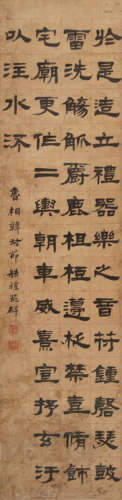 於是造立禮器樂之音苻鍾磬瑟鼓
雷洗觴觚爵鹿柤梪籩柉禁壺脩飾
宅廟更作二輿朝車威熹宣抒玄汙
以注水流
魯相韓勑節臨禮器碑